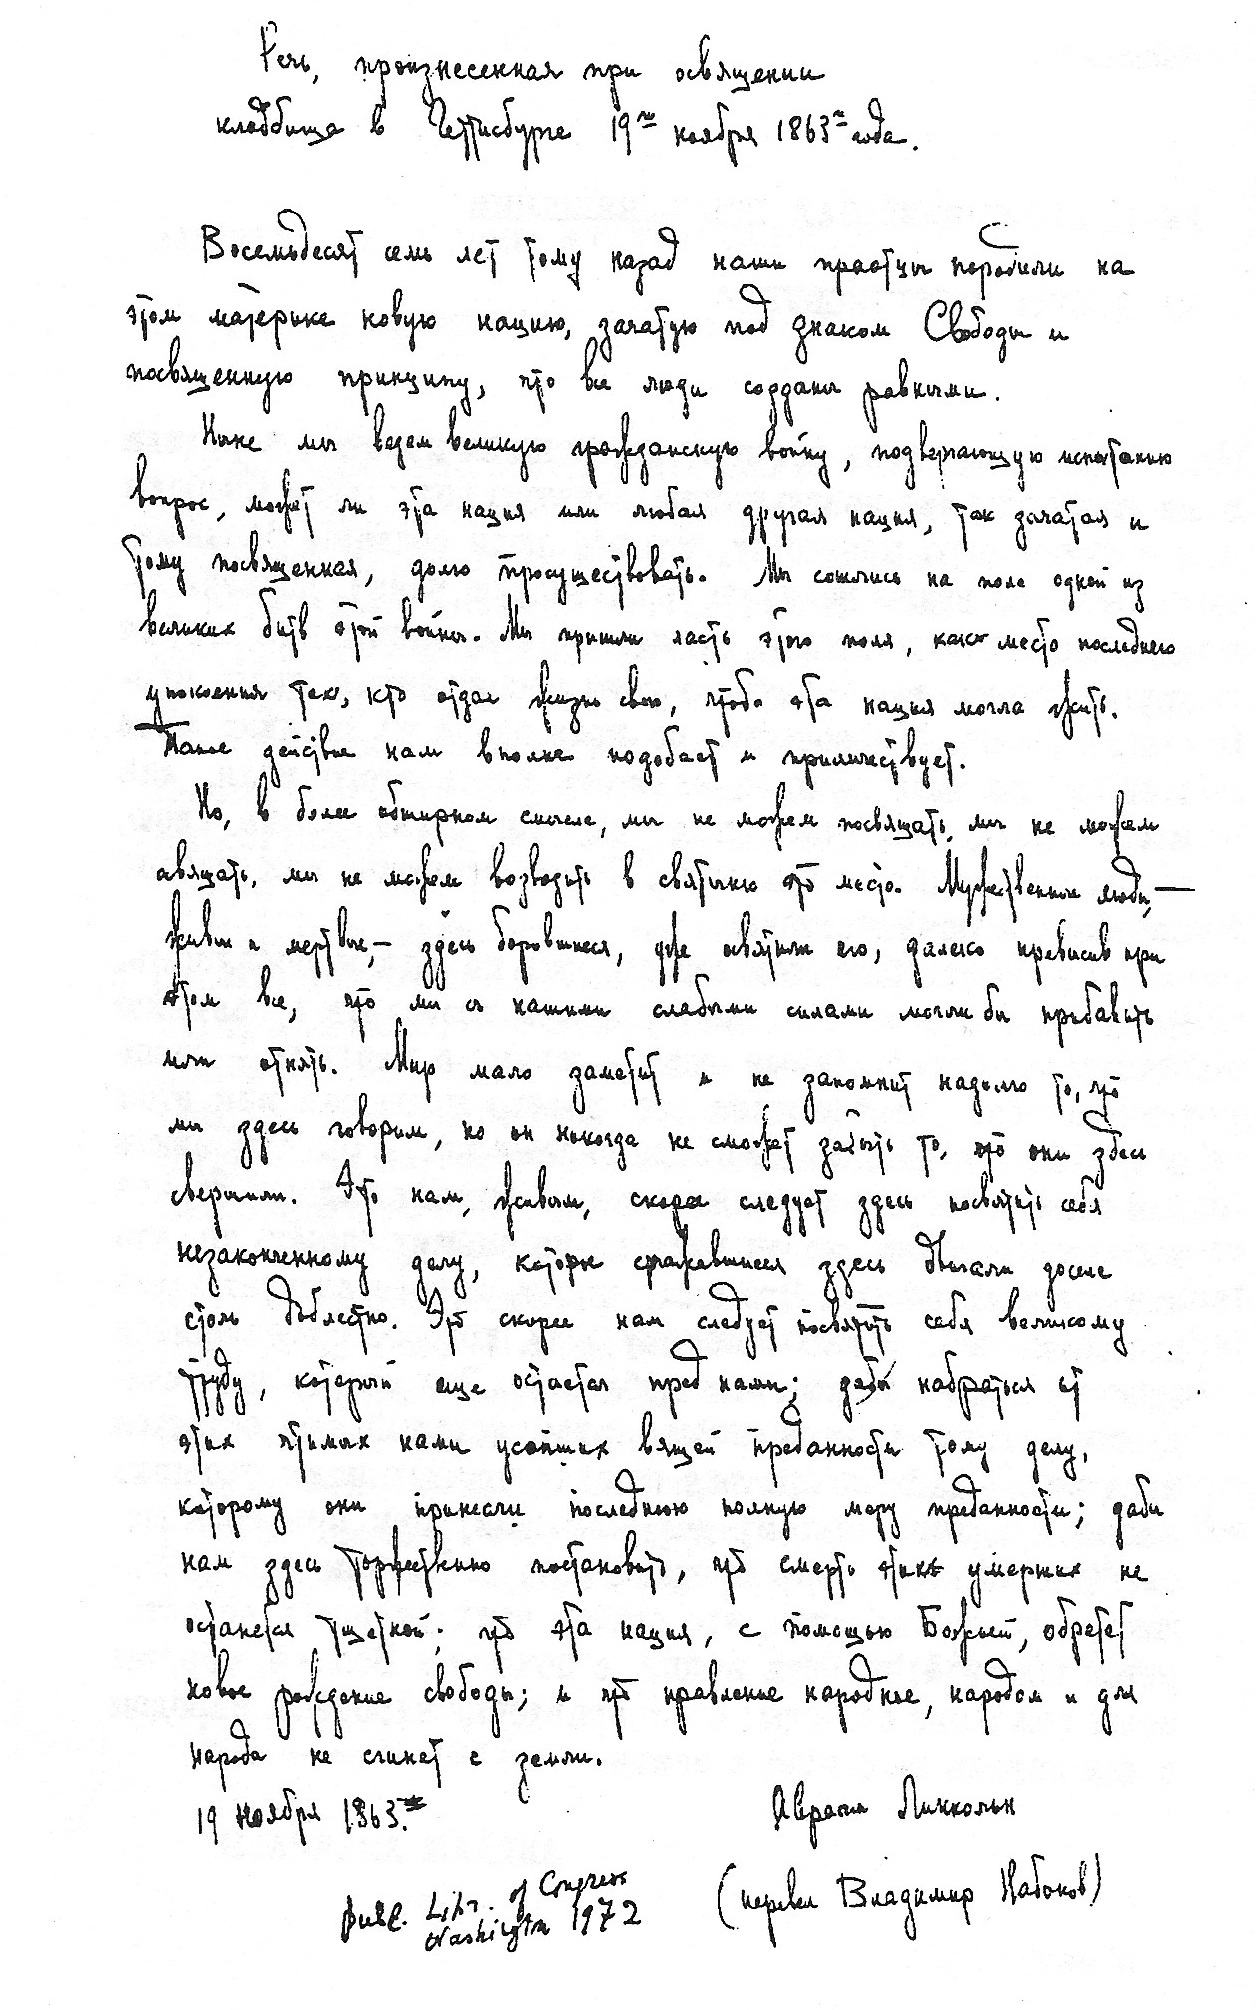 Речь, произнесенная при освящении
кладбища в Геттисбурге 19го ноября 1863го года.
Восемьдесят семь лет тому назад наши праотцы породили на
этом материке новую нацию, зачатую под знаком Свободы и
посвященную принципу, что все люди созданы равными.
Ныне мы ведем великую гражданскую войну, подвергающую испытанию
вопрос, может ли эта нация или любая другая нация, так зачатая и
тому посвященная, долго просуществовать. Мы сошлись на поле одной из
великих битв этой войны. Мы пришли часть этого поля, как место последнего
упокоения тех, кто отдал жизнь свою, чтобы эта нация могла жить.
Такое действие нам вполне подобает и приличествует.
Но, в более обширном смысле, мы не можем посвящать, мы не можем
освящать, мы не можем возводить в святыню это место. Мужественные люди,—
живые и мертвые,— здесь боровшиеся, уже освятили его, далеко превысив при
этом все, что мы с нашими слабыми силами могли бы прибавить
или отнять. Мир мало заметит и не запомнит надолго то, что
мы здесь говорим, но он никогда не сможет забыть то, что они здесь
свершили. Это нам, живым, скорее следует здесь посвятить себя
незаконченному делу, которое сражавшиеся здесь двигали доселе
столь доблестно. Это скорее нам следует посвятить себя великому
труду, который еще остается пред нами; дабы набраться от
этих чтимых нами усопших вящей преданности тому делу,
которому они принесли последнюю полную меру преданности; дабы
нам здесь торжественно постановить, что смерть этих умерших не
останется тщетной; что эта нация, с помощью Божьей, обретет
новое рождение свободы; и что правление народное, народом и для
народа не сгинет с земли.
19 ноября 1863.
Авраам Линкольн
(перевел Владимир Набоков)
publ. Libr. of Congress
Washington 1972